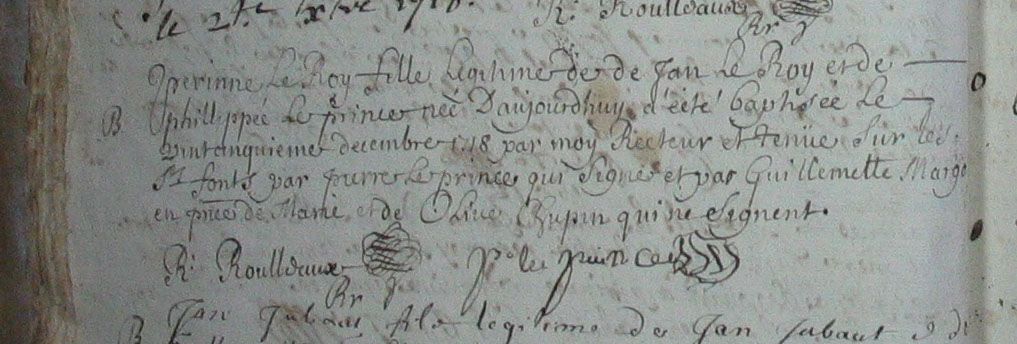 le 2.e xbre 1718. R: Roulleaux
Rr
perinne Le Roy fille Legitime de de Jan Le Roy et de
B phillppée Le prince neé D'aujourdhuy, a ééte baptisée Le
vintcinquieme decembre 1718 par moy Recteur Et tenüe Sur les
Sts fonts par pierre Le prince qui Signe et par Guillemette Margo
en pñce de Marie et de Olive Chupin qui ne Signent.
R: Roulleaux p le prince
Rr
B Jan Jubaut fils legitime de Jan Jubaut & de